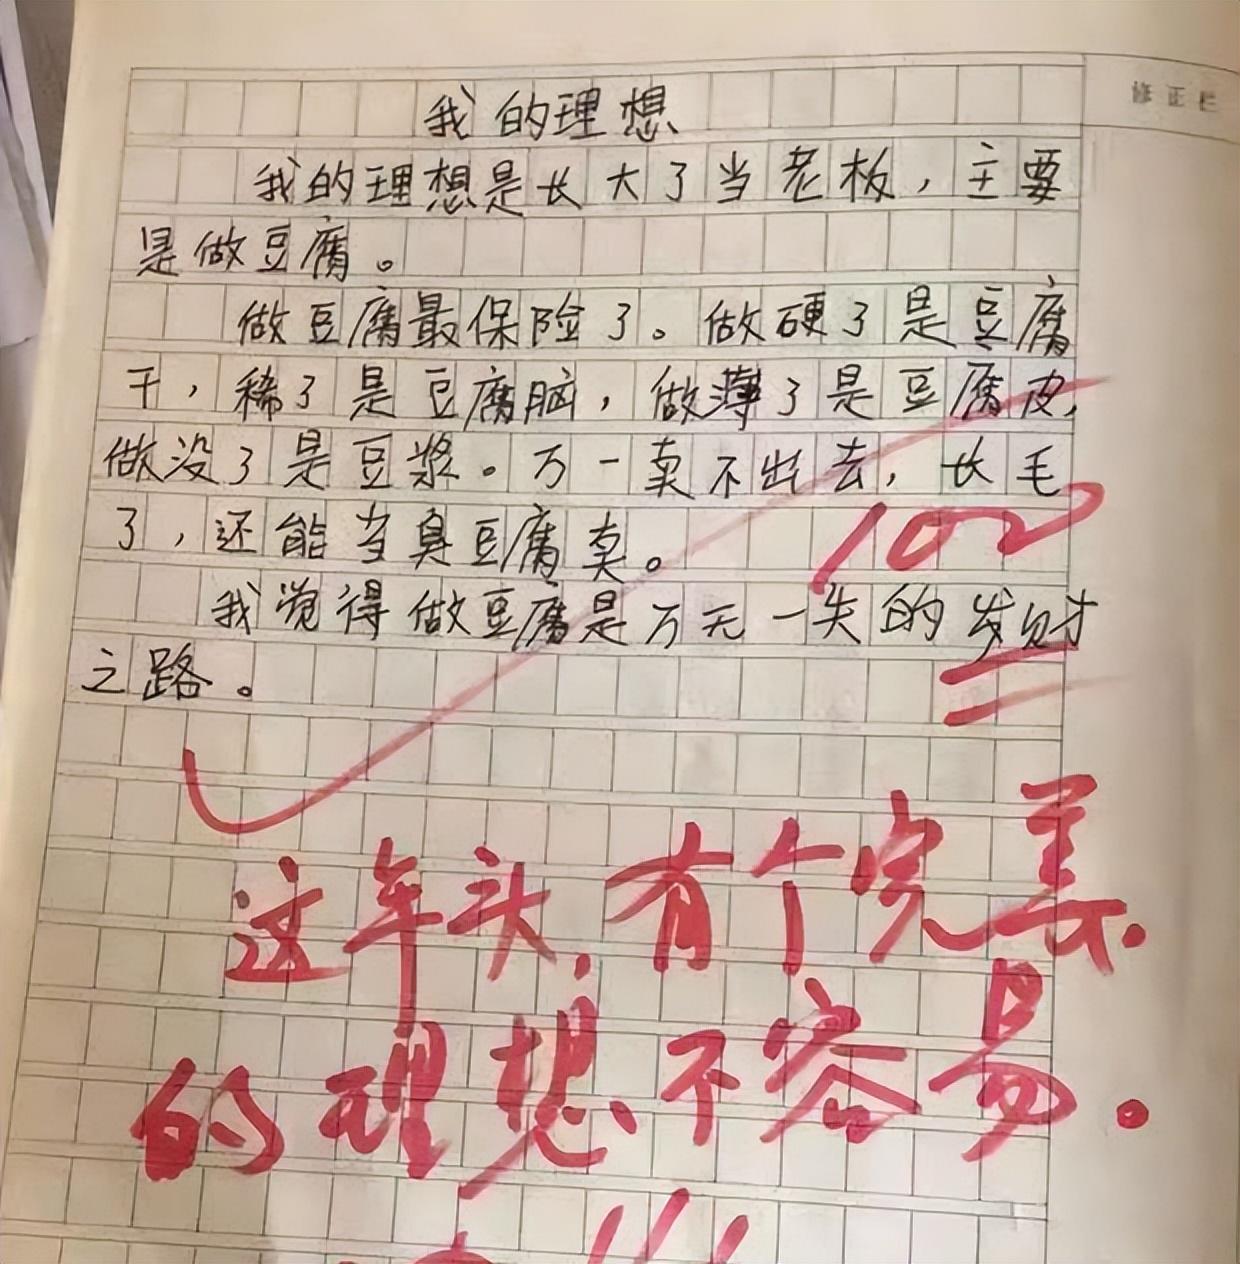 修正栏
我的理想
我的理想是长大了当老板，主要
是做豆腐。
做豆腐最保险了。做硬了是豆腐
干，稀了是豆腐脑，做薄了是豆腐皮，
做没了是豆浆。万一卖不出去，长毛
了，还能当臭豆腐卖。
我觉得做豆腐是万无一失的发财
之路。
100
这年头，有个完美
的理想不容易。